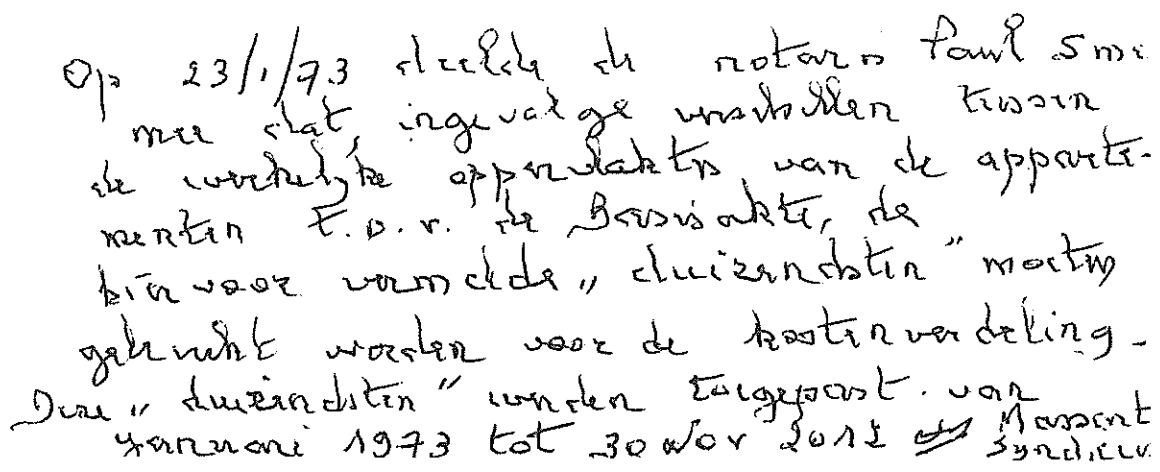 Op 23/1/73 deelde de notaris Paul Sme
mee dat, ingevolge verschillen tussen
de werkelijke oppervlaktes van de apparte-
menten t.o.v. de Basisakte, de
hiervoor vermelde „duizendsten" moeten
gebruikt worden voor de kostenverdeling.
Deze „duizendsten" werden toegepast van
januari 1973 tot 30 Nov 2012
Syndicus